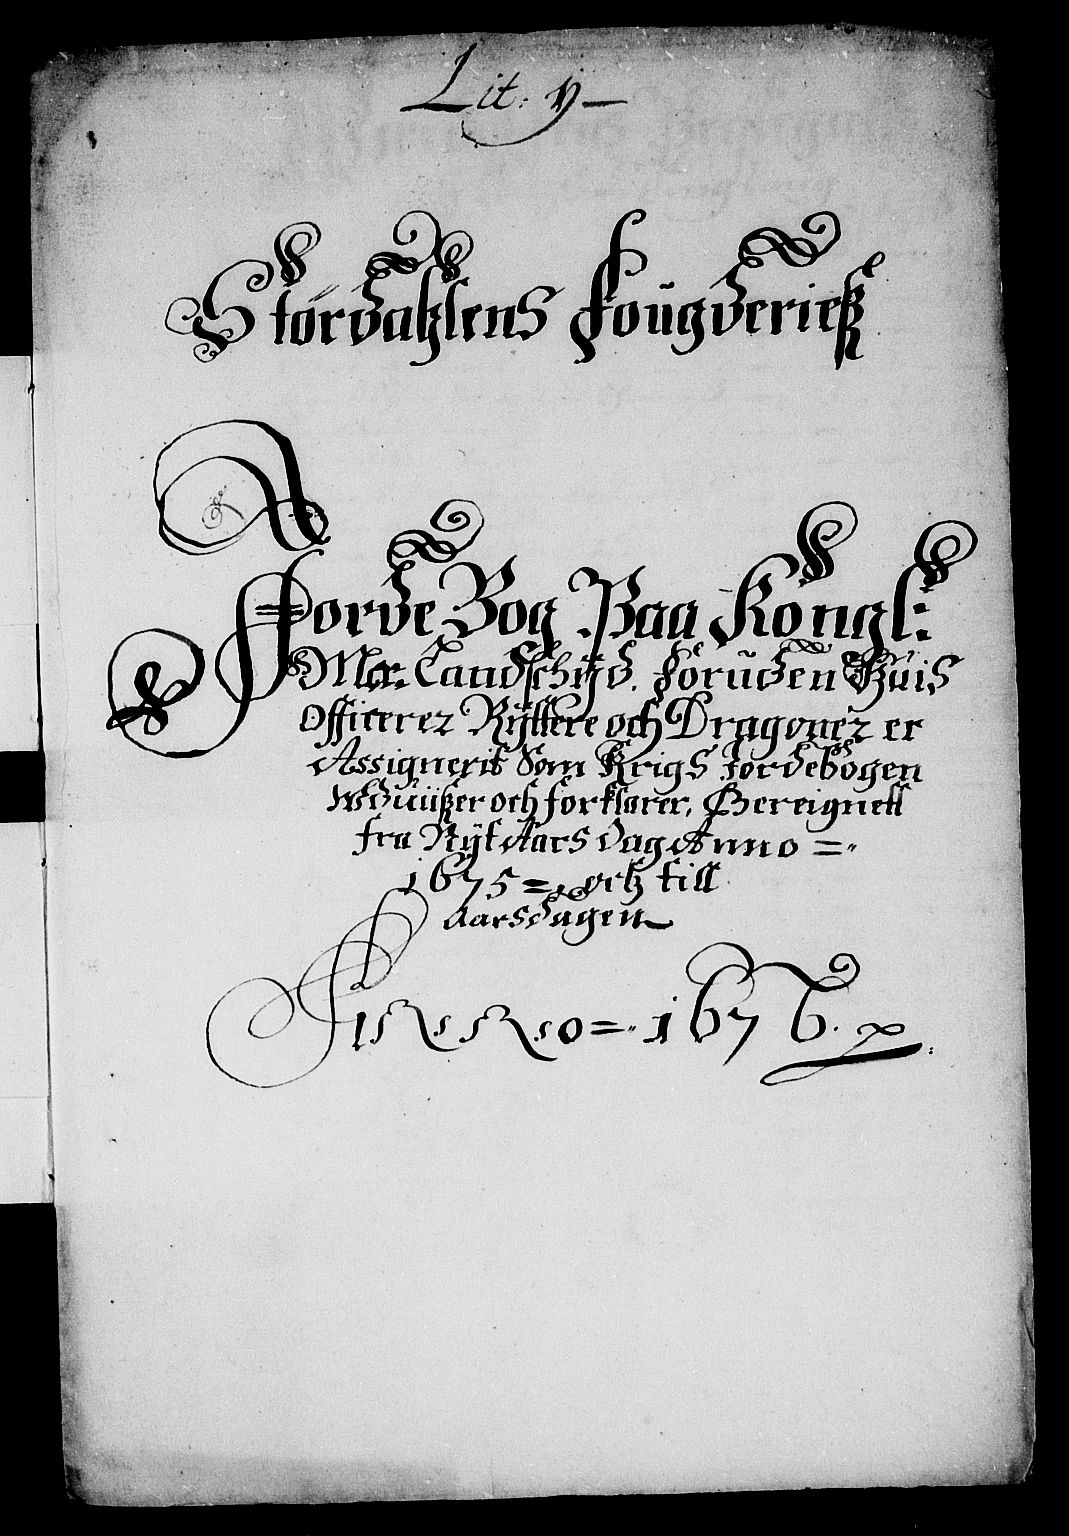 Lit: y
Stordahlens Fougderieß
Jorde Bog Paa Kongl:
May: Landschÿd. Foruden Huis
Officerer Rÿttere och Dragoner er
Assignerit Som Krigs Jordebogen
Wduiißer och forklarer, Bereignett
fra Nÿt Aars Dag Anno =
1675 = och till
Aarsdagen
Anno = 1676.